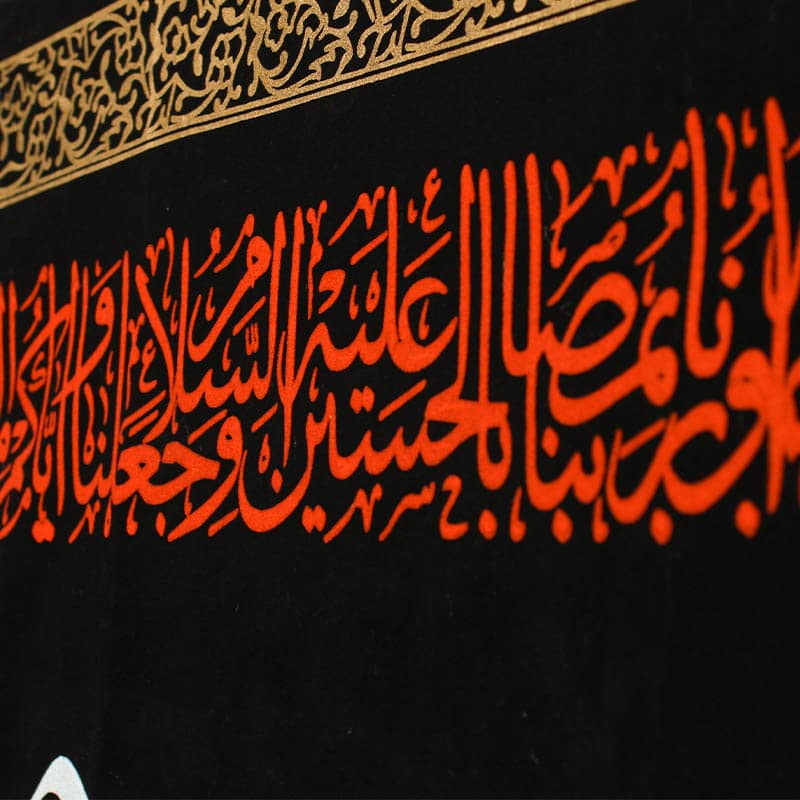 أجورنا بمصابنا بالحسين عليه السلام وجعلنا وإياكم